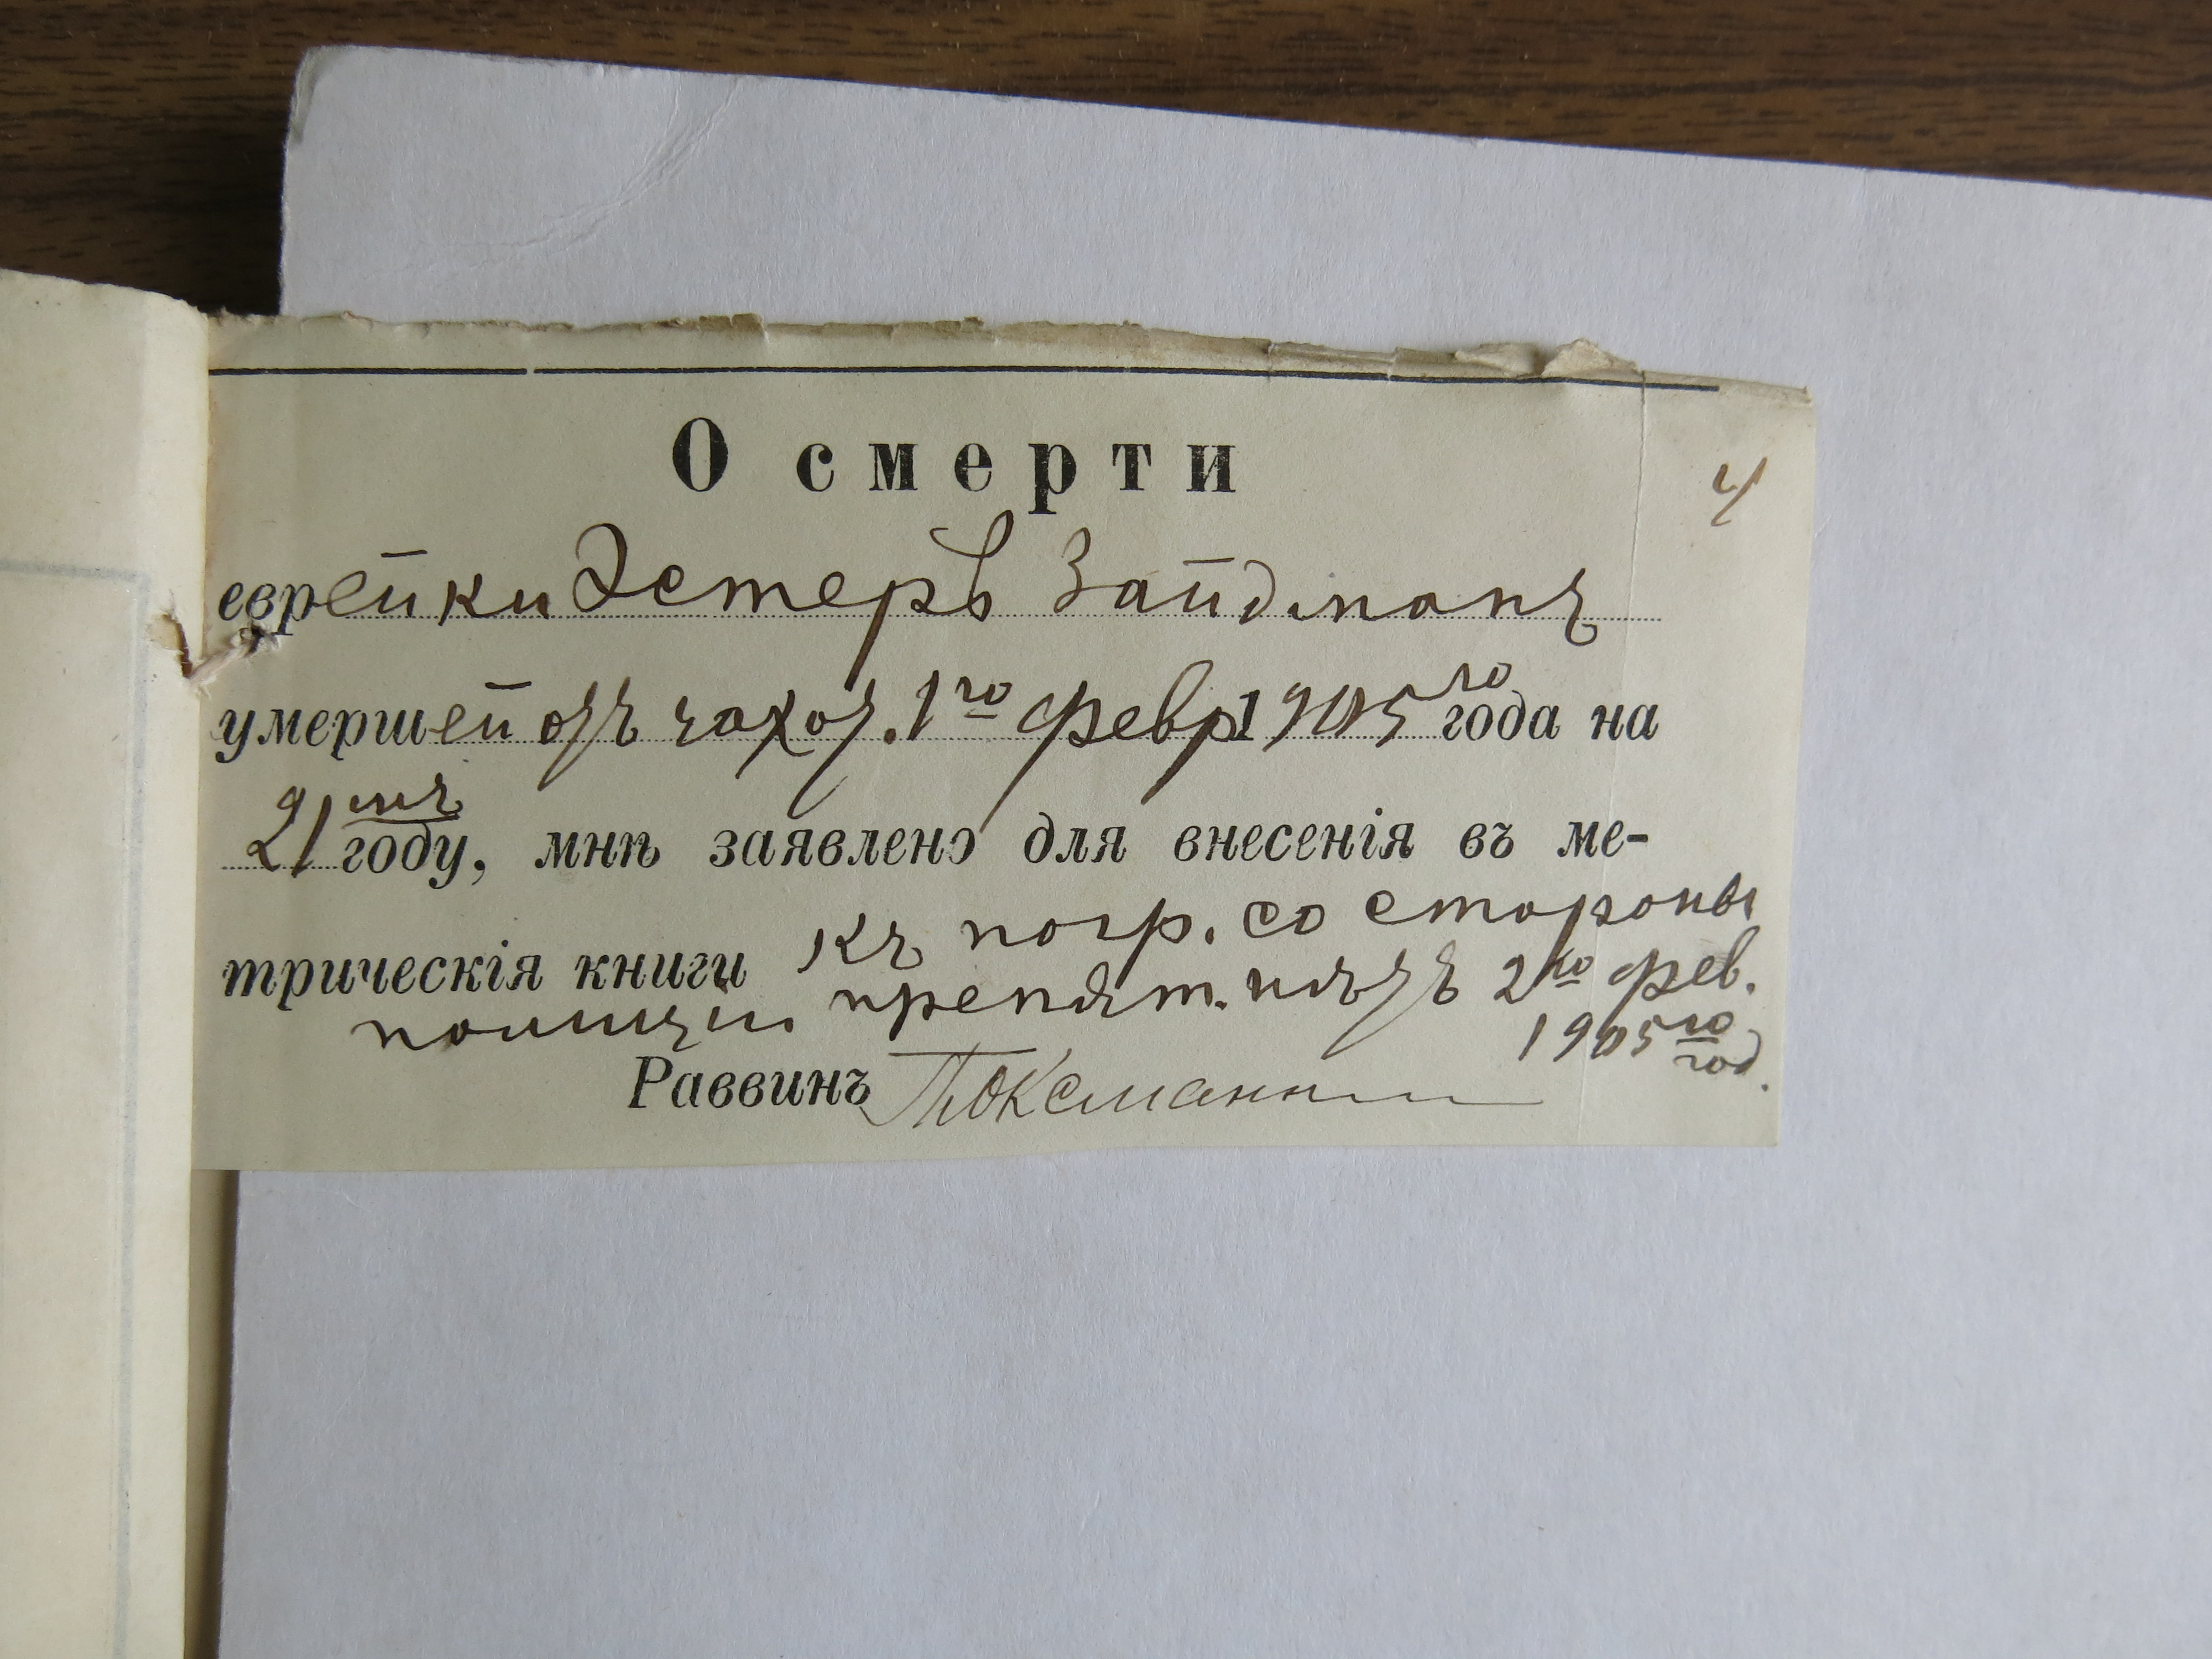 О смерти
4
еврейки Эстеръ Зайдманъ
умершей отъ чахот. 1го февр 1905го года на
21мъ году, мнѣ заявлено для внесенія въ ме-
трическія книги къ погр. со стороны
полиціи препят. нѣтъ 2го фев.
1905го год.
Раввинъ